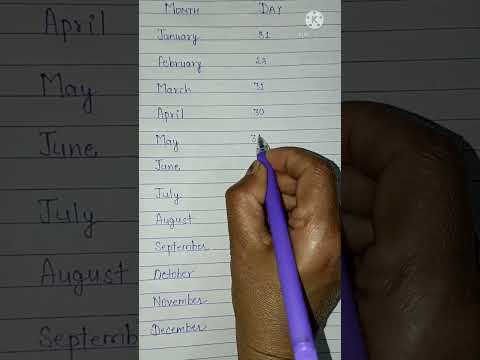 MONTH DAY
January 31
February 28
March 31
April 30
May 3
June
July
August
September
October
November
December
April
May
June
July
August